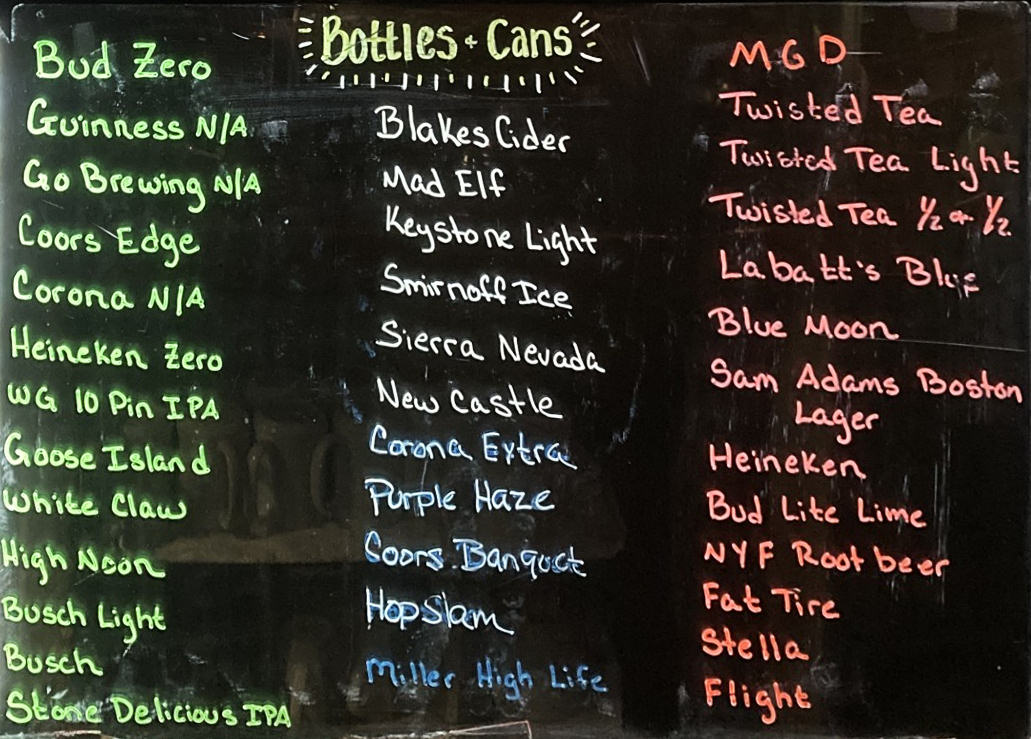 Bottles + Cans
Bud Zero
Guinness N/A
Go Brewing N/A
Coors Edge
Corona N/A
Heineken Zero
WG 10 Pin IPA
Goose Island
White Claw
High Noon
Busch Light
Busch
Stone Delicious IPA
Blakes Cider
Mad Elf
Keystone Light
Smirnoff Ice
Sierra Nevada
New Castle
Corona Extra
Purple Haze
Coors Banquet
Hopslam
Miller High Life
MGD
Twisted Tea
Twisted Tea Light
Twisted Tea 1/2 + 1/2
Labatt's Blue
Blue Moon
Sam Adams Boston
Lager
Heineken
Bud Lite Lime
NYF Root beer
Fat Tire
Stella
Flight